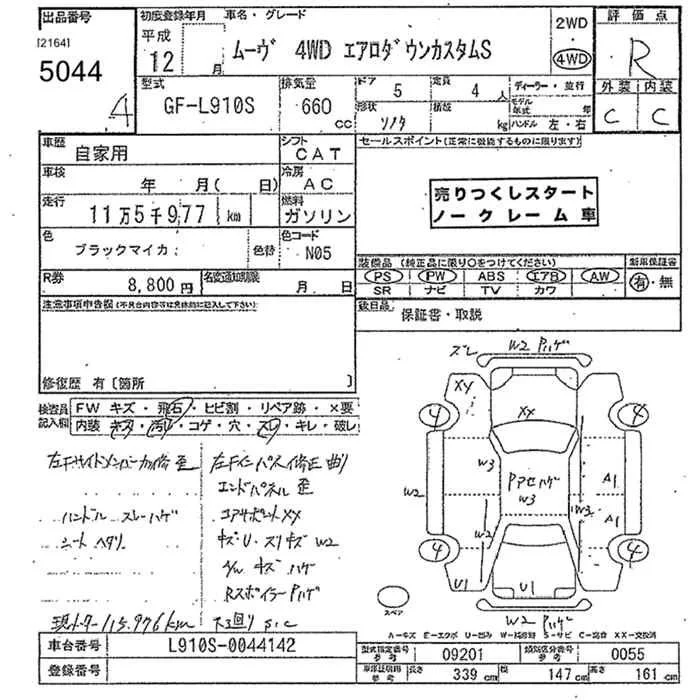 出品番号 初度登録年月 車名・グレード 2WD 評価点
[2164]
5044
平成
12 月
ムーヴ 4WD エアロダウンカスタムS
4WD
R
4
型式 排気量 ドア 5 定員 4 人 ディーラー・並行 外装 内装
GF-L910S 660 cc
形状 ソノタ 積載 kg モデル年式 年
ハンドル 左・右
C C
車歴 自家用 シフト CAT セールスポイント(正常に機能するものに限ります)
車検 年 月(日) 冷房 AC
売りつくしスタート
ノークレーム車
走行 11万5千977 km 燃料 ガソリン
色 ブラックマイカ 色替 色コード N05
装備品 (純正品に限り○をつけてください) 新車保証書
PS PW ABS エアB AW 有・無
SR ナビ TV カワ
R券 8,800円 名変通知期限 月 日
後日品 保証書・取説
注意事項申告欄(不具合内容等は具体的に記入して下さい)
修復歴 有〔箇所 〕
検査員記入欄
FW キズ・飛石・ヒビ割・リペア跡・×要
内装 キズ・汚れ・コゲ・穴・スレ・キレ・破レ
左Fサイドメンバー力修 歪
左Fインパネス修正 曲り
エンドパネル 歪
ハンドル スレハゲ
コアサポートXX
シート ヘタリ
キズU・スリキズ W2
A/W キズ ハゲ
Rスポイラー Pハゲ
現メーター115.976km
下廻り S.C
ズレ W2 Pハゲ
XY
XX
4 4
W3
Pアセハゲ
W3
A1
W2
W3
A1
W2
4 4
U1 U1
スペア
W2 Pハゲ
A-キズ E-エクボ U-凹み W-補修跡 S-サビ C-腐食 XX-交換済
車台番号 L910S-0044142
型式指定番号 参考 09201 類別区分番号 参考 0055
登録番号
車体寸法 参考 長さ 339 cm 幅 147 cm 高さ 161 cm